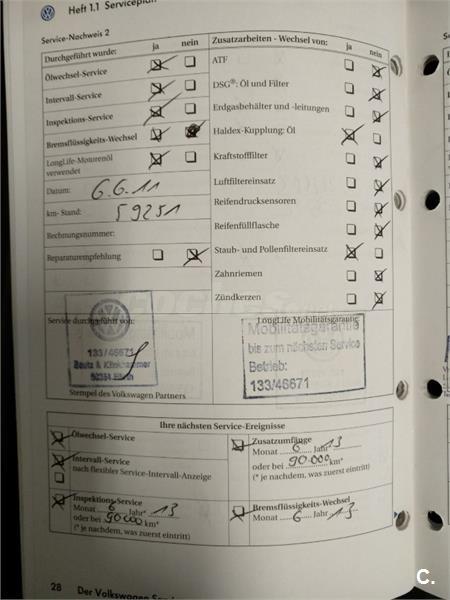 Heft 1.1 Serviceplan
Service-Nachweis 2
Durchgeführt wurde: ja nein
Ölwechsel-Service
Intervall-Service
Inspektions-Service
Bremsflüssigkeits-Wechsel
LongLife-Motorenöl
verwendet
Datum: 6.6.11
km- Stand: 59251
Rechnungsnummer:
Reparaturempfehlung
Zusatzarbeiten - Wechsel von: ja nein
ATF
DSG®: Öl und Filter
Erdgasbehälter und -leitungen
Haldex-Kupplung: Öl
Kraftstofffilter
Luftfiltereinsatz
Reifendrucksensoren
Reifenfüllflasche
Staub- und Pollenfiltereinsatz
Zahnriemen
Zündkerzen
Service durchgeführt von:
133/46671
Stempel des Volkswagen Partners
LongLife Mobilitätsgarantie
Mobilitätsgarantie
bis zum nächsten Service
Betrieb:
133/46671
Ihre nächsten Service-Ereignisse
Ölwechsel-Service
Intervall-Service
nach flexibler Service-Intervall-Anzeige
Inspektions-Service
Monat 6 Jahr* 13
oder bei 90000 km*
(* je nachdem, was zuerst eintritt)
Zusatzumfänge
Monat 6 Jahr* 13
oder bei 90.000 km*
(* je nachdem, was zuerst eintritt)
Bremsflüssigkeits-Wechsel
Monat 6 Jahr 13
28 Der Volkswagen
C.